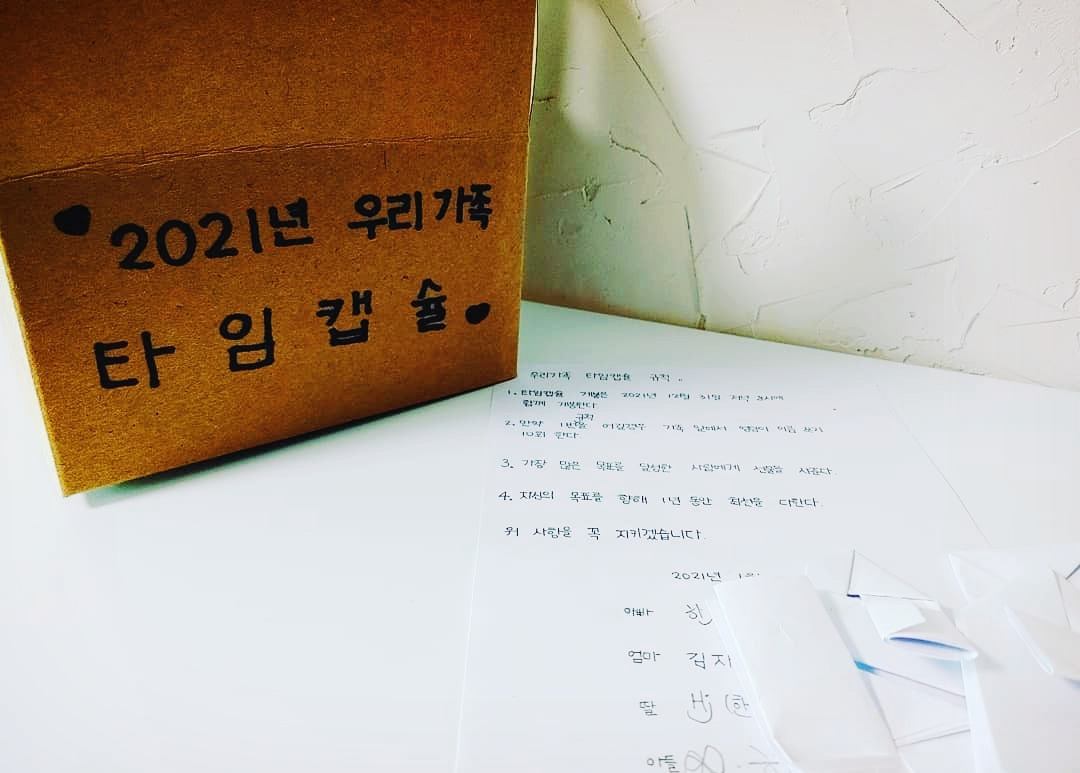 2021년 우리가족
타임캡슐
우리가족 타임캡슐 규칙.
1. 타임캡슐 개봉은 2021년 12월 31일 저녁 8시에
함께 개봉한다
규칙
2. 만약 1번을 어길경우 가족 앞에서 엉덩이 이름 쓰기
10회 한다
3. 가장 많은 목표를 달성한 사람에게 선물을 사준다.
4. 자신의 목표를 향해 1년 동안 최선을 다한다.
위 사항을 꼭 지키겠습니다.
2021년
아빠
엄마 김지
딸 (한
아들